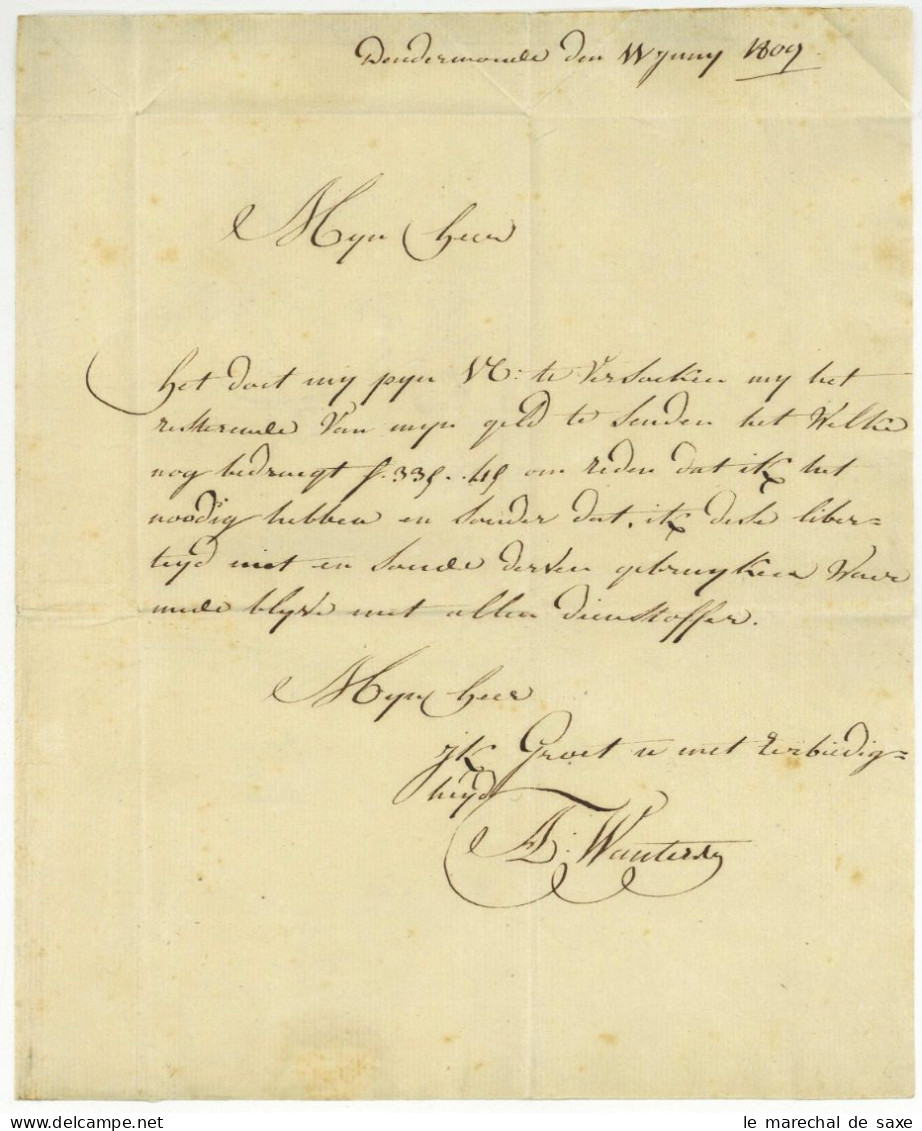 Dendermonde den 11 Juny 1809
Mijn heer
het doet my pyn VE: te Versoeken my het
resterende Van myn geld te senden het Welke
nog bedraegt f. 335..45 om reden dat ik het
noodig hebben en sonder dat. ik dese liber=
tyd niet en soude derven gebruyken Waer
mede blyve met allen dienstoffer.
Myn heer
jk Groet u met Eerbiedig=
heyd
Wauters
le marechal de saxe